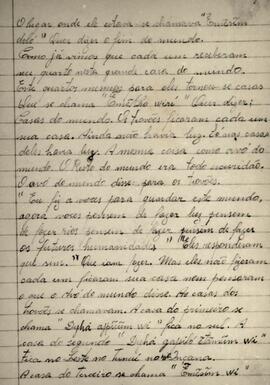 O lugar onde ele estava se chamava "Emẽkõm
diló" Quer dizer o fim do mundo.
Como já vimos que cada um receberam
seu quarto nesta grande casa do mundo.
Este quartos mesmos para eles tornou se casas
que se chama wiri" Quer dizer:
Casas do mundo. Os Trovões ficaram cada um
sua casa. Ainda não havia luz. Só nas casas
deles havia luz. A mesma coisa como avô do
mundo. O Resto do mundo era todo escuridão.
O avô do mundo disse para os Trovões.
"Eu fiz a vocês para guardar este mundo,
agora voces pensem de fazer luz, pensem
de fazer rios pensem de fazer, pensem de fazer
os futuros humanidades" eles responderam
que sim. "Que iam fazer. Mas eles não fizeram
cada um ficaram sua casa nem pensaram
o que o Avô do mundo disse. As casas dos
trovões se chamavam. A casa do primeiro se
chama "Dyhá wi" fica no sul. A
casa do segundo "Dyhá wi"
fica no Leste no
A casa do terceiro se chama wi"